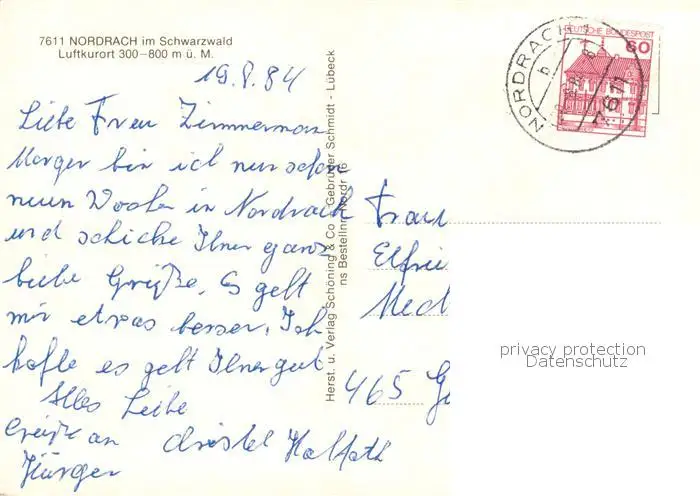 7611 NORDRACH im Schwarzwald
Luftkurort 300-800 m ü. M.
19.8.84
Liebe Frau Zimmermann
Morgen bin ich nun schon
neun Wochen in Nordrach
und schicke Ihnen ganz
liebe Grüße. Es geht
mir etwas besser. Ich
hoffe es geht Ihnen gut
Alles Liebe
Grüße an Christel Halfath
Jürgen
Herst. u. Verlag Schöning & Co + Gebrüder Schmidt - Lübeck
ns Bestellnr. Nordr 16
DEUTSCHE BUNDESPOST
60
NORDRACH
7611
Frau
Elfrie
Mech
465 Ge
privacy protection
Datenschutz